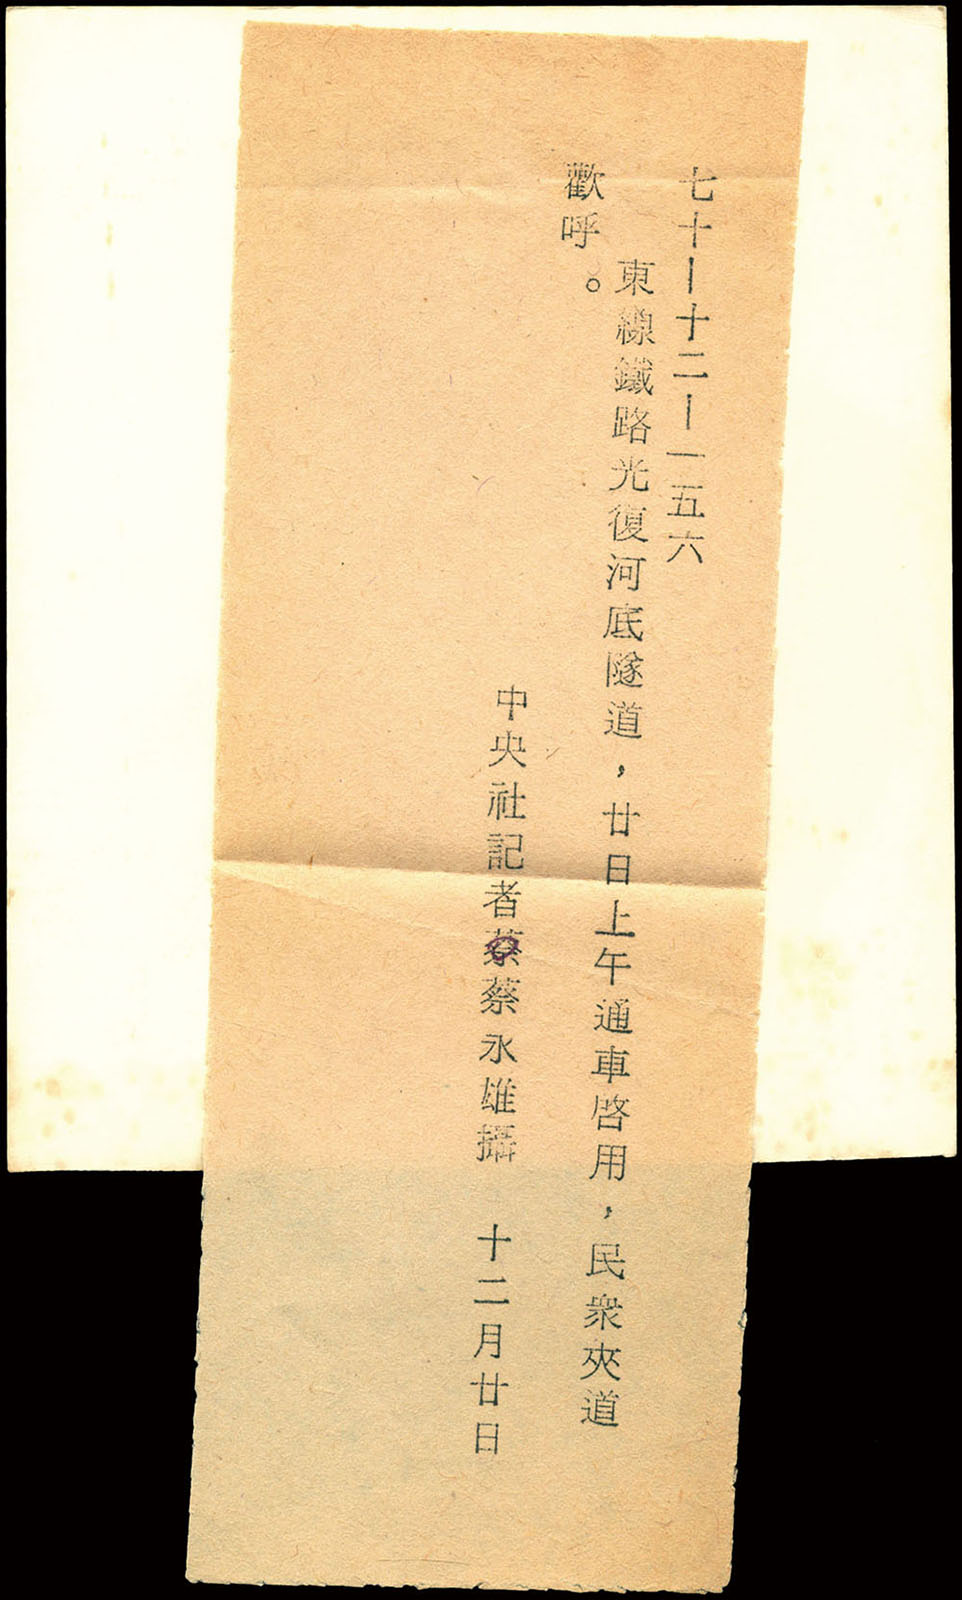 七十｜十二｜一五六
東線鐵路光復河底隧道，廿日上午通車啓用，民衆夾道
歡呼。
中央社記者蔡蔡永雄攝　十二月廿日